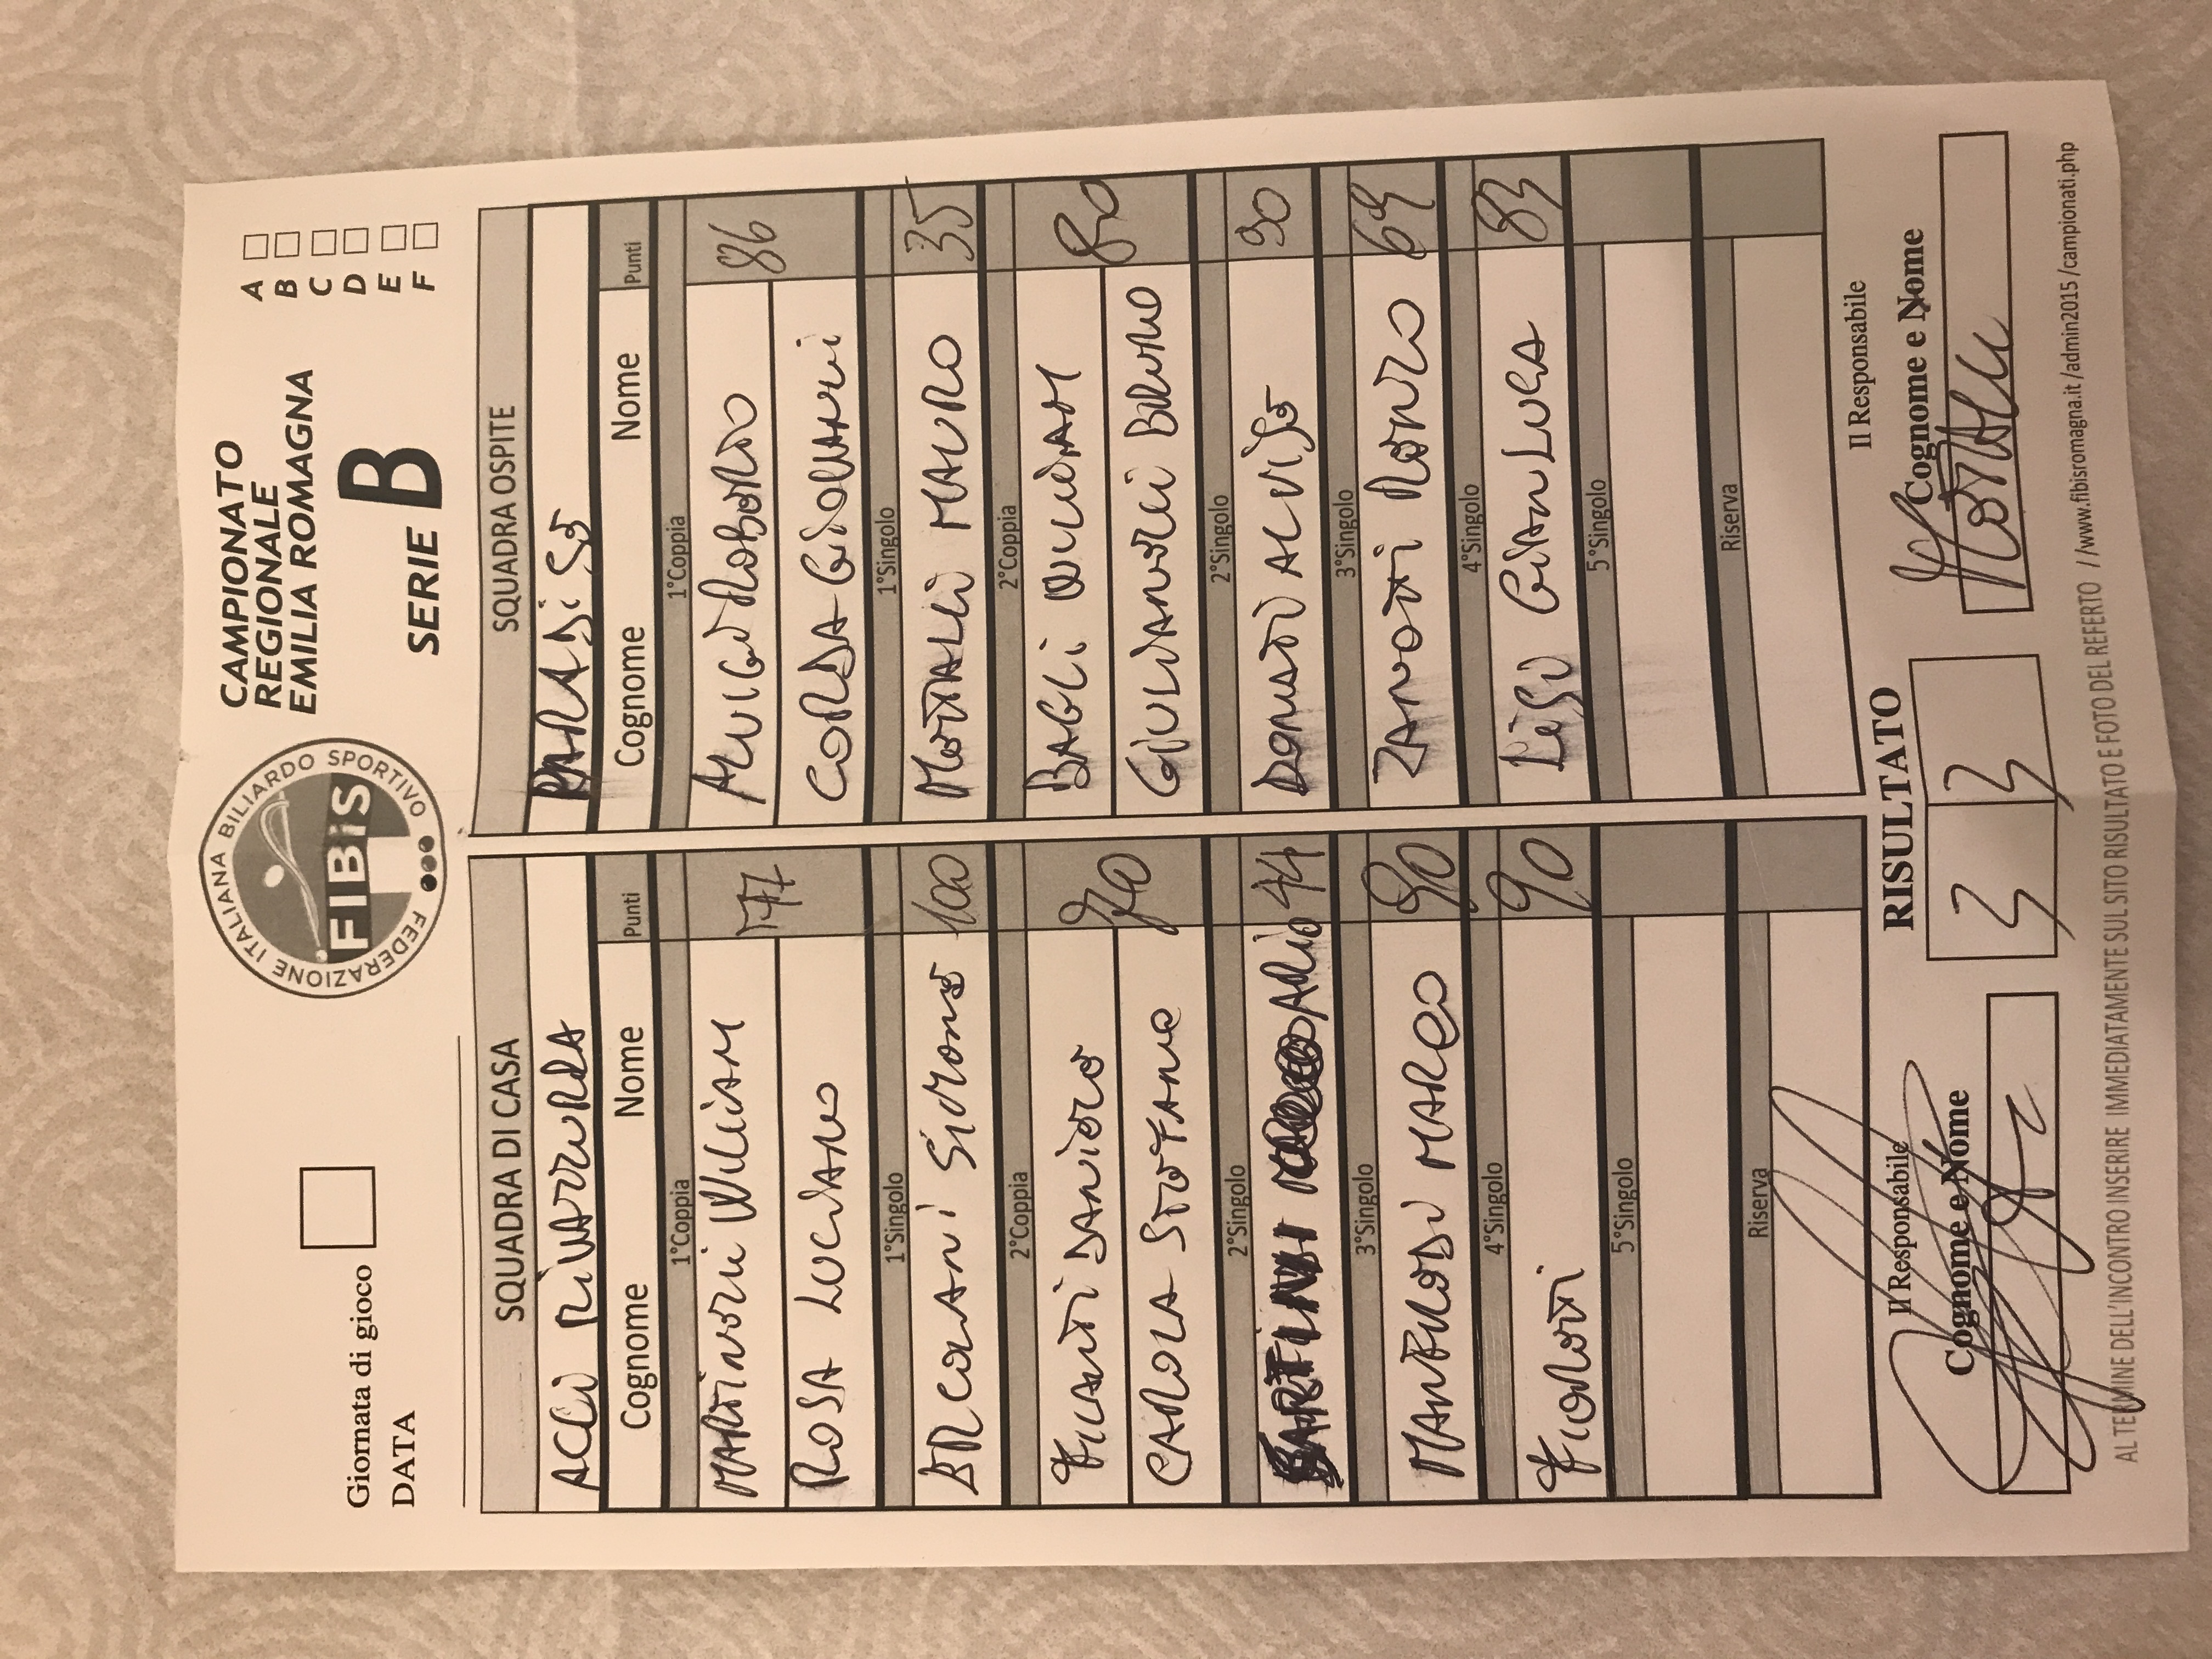 Giornata di gioco
DATA
FEDERAZIONE ITALIANA BILIARDO SPORTIVO
FIBiS
CAMPIONATO
REGIONALE
EMILIA ROMAGNA
SERIE B
A
B
C
D
E
F
SQUADRA DI CASA
ACLI RIVAZZURRA
Cognome Nome Punti
1°Coppia
MARTINORII WILLIAM 77
ROSA LUCIANO
1°Singolo
ERCOLANI SIMONE 100
2°Coppia
FUCANTI DANIELE 70
CAROLA STEFANO
2°Singolo
BARTININI ADLIO 44
3°Singolo
MANFREDI MARCO 90
4°Singolo
FIOROTTI 90
5°Singolo
Riserva
SQUADRA OSPITE
PARADISO
Cognome Nome Punti
1°Coppia
ALUIGI ROBERTO 86
CORDA GIOVANNI
1°Singolo
MORTALI MAURO 35
2°Coppia
BAGLI WILLIAM 80
GIULIANELLI BRUNO
2°Singolo
DONATI ALVISE 90
3°Singolo
ZANOTTI RENZO 69
4°Singolo
LISI GIANLUCA 83
5°Singolo
Riserva
Il Responsabile
Cognome e Nome
RISULTATO
3 3
Il Responsabile
Cognome e Nome
AL TERMINE DELL'INCONTRO INSERIRE IMMEDIATAMENTE SUL SITO RISULTATO E FOTO DEL REFERTO //www.fibisromagna.it /admin2015 /campionati.php